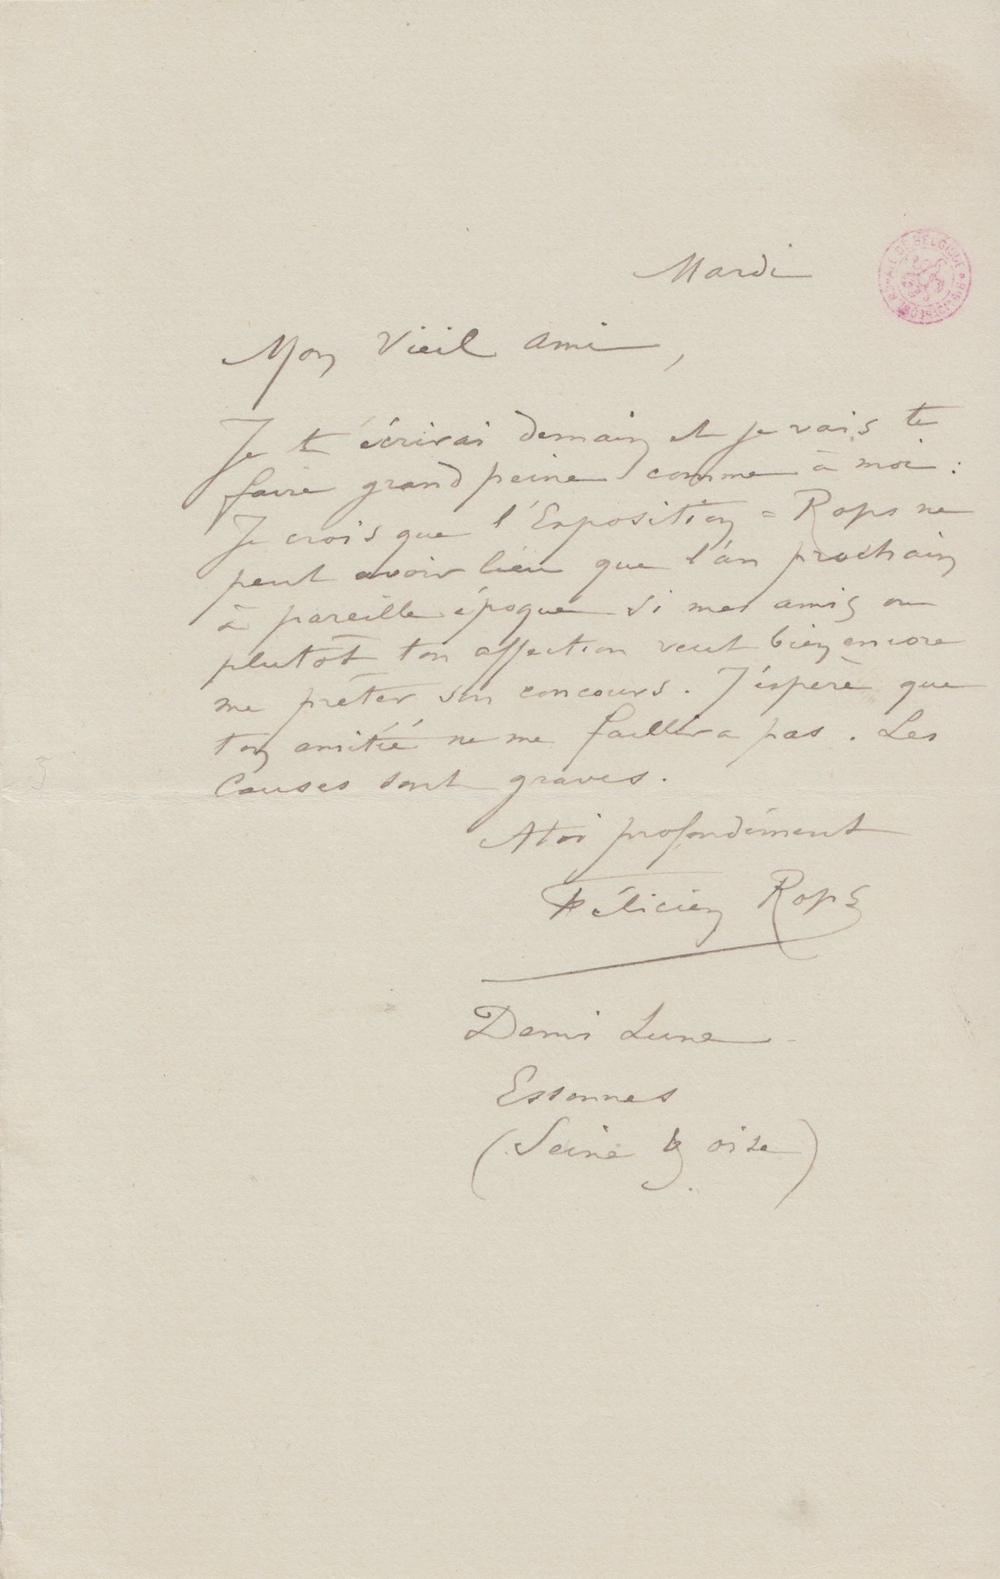 Mardi
Mon Vieil ami,
Je t'écrirai demain et je vais te
faire grand peine comme à moi :
Je crois que l'Exposition = Rops ne
peut avoir lieu que l'an prochain
à pareille époque si mes amis ou
plutôt ton affection veut bien encore
me prêter son concours. J'espère que
ton amitié ne me faillira pas. Les
Causes sont graves.
A toi profondément
Félicien Rops
Demi Lune
Essonnes
(Seine & oise)